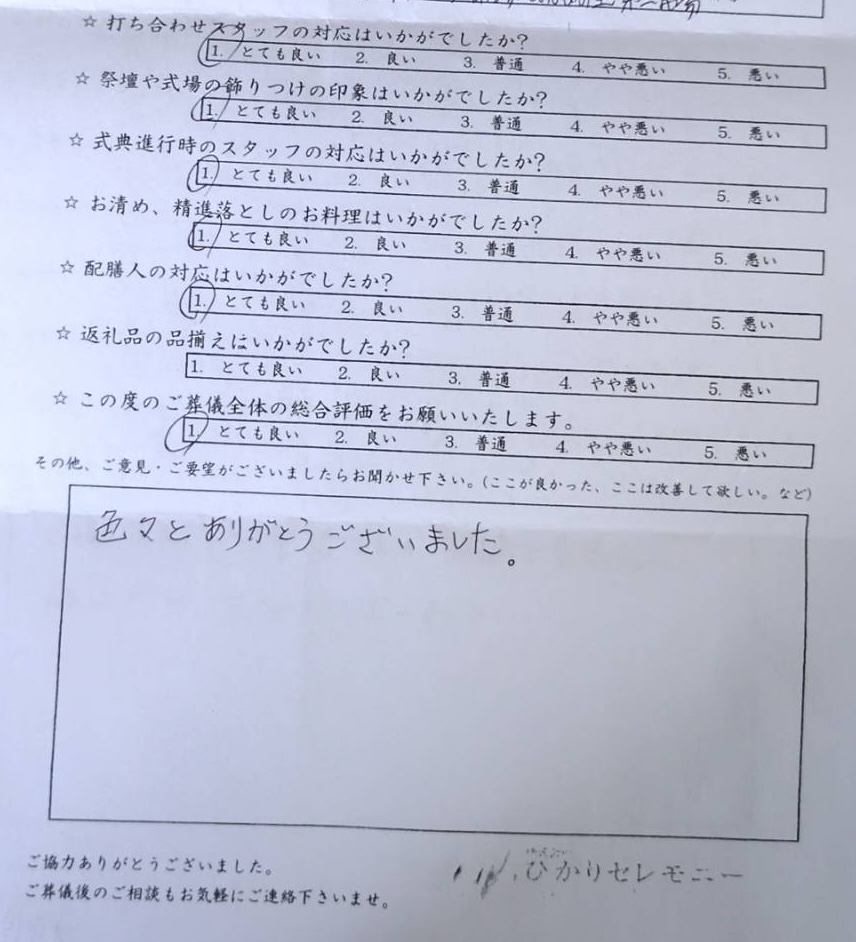 ☆ 打ち合わせスタッフの対応はいかがでしたか?
1. とても良い 2. 良い 3. 普通 4. やや悪い 5. 悪い
☆ 祭壇や式場の飾りつけの印象はいかがでしたか?
1. とても良い 2. 良い 3. 普通 4. やや悪い 5. 悪い
☆ 式典進行時のスタッフの対応はいかがでしたか?
1. とても良い 2. 良い 3. 普通 4. やや悪い 5. 悪い
☆ お清め、精進落としのお料理はいかがでしたか?
1. とても良い 2. 良い 3. 普通 4. やや悪い 5. 悪い
☆ 配膳人の対応はいかがでしたか?
1. とても良い 2. 良い 3. 普通 4. やや悪い 5. 悪い
☆ 返礼品の品揃えはいかがでしたか?
1. とても良い 2. 良い 3. 普通 4. やや悪い 5. 悪い
☆ この度のご葬儀全体の総合評価をお願いいたします。
1. とても良い 2. 良い 3. 普通 4. やや悪い 5. 悪い
その他、ご意見・ご要望がございましたらお聞かせ下さい。(ここが良かった、ここは改善して欲しい。など)
色々とありがとうございました。
ご協力ありがとうございました。
ご葬儀後のご相談もお気軽にご連絡下さいませ。
ひかりセレモニー